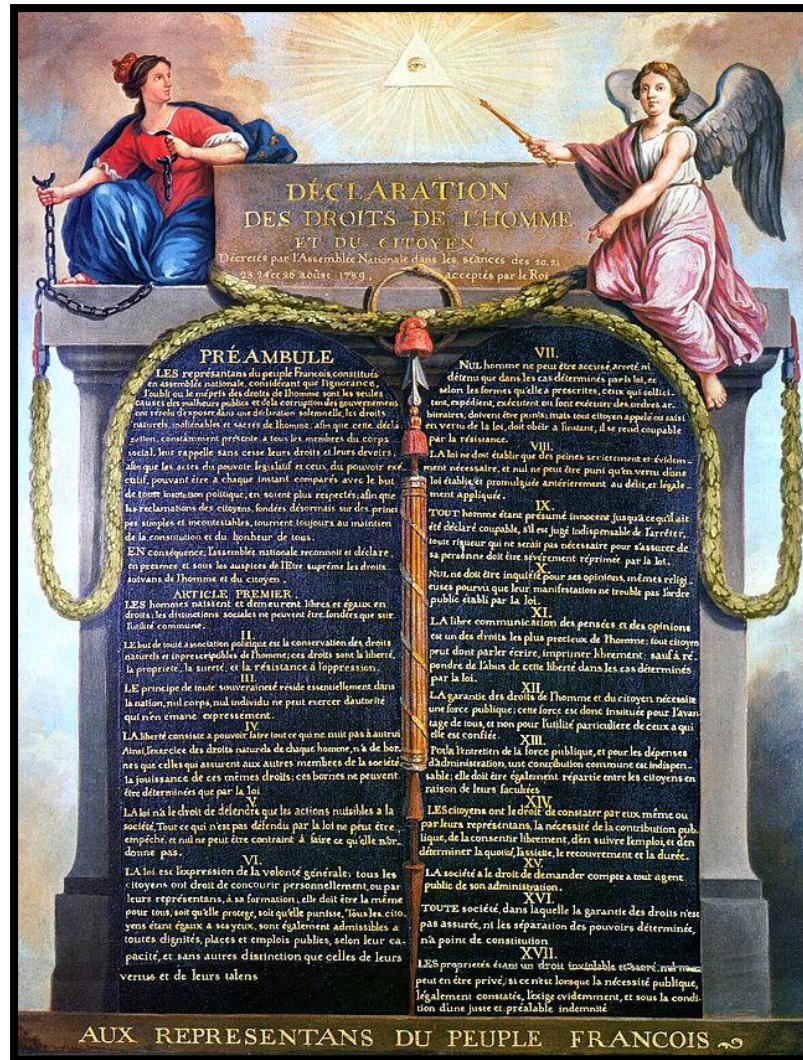 DÉCLARATION
DES DROITS DE L'HOMME
ET DU CITOYEN,
Décretés par l'Assemblée Nationale dans les séances des 20, 21
23, 24 et 26 août 1789, acceptés par le Roi
PRÉAMBULE
LES représantans du peuple Francois, constitués
en assemblée nationale, considérant que l'ignorance,
l'oubli ou le mépris des droits de l'homme sont les seules
causes des malheurs publics et de la corruption des gouvernemens
ont résolu d'exposer dans une déclaration solemnelle, les droits
naturels, inaliénables et sacrés de l'homme; afin que cette décla
ration, constamment présente a tous les membres du corps
social, leur rappelle sans cesse leurs droits et leurs devoirs;
afin que les actes du pouvoir législatif et ceux du pouvoir exé
cutif, pouvant être a chaque instant comparés avec le but
de toute institution politique, en soient plus respectés; afin que
les reclamations des citoyens, fondées désormais sur des princi
pes simples et incontestables, tournent toujours au maintien
de la constitution et du bonheur de tous.
EN conséquence, l'assemblée nationale reconnoit et déclare,
en presence et sous les auspices de l'Etre suprême les droits
suivans de l'homme et du citoyen.
ARTICLE PREMIER.
LES hommes naissent et demeurent libres et égaux en
droits; les distinctions sociales ne peuvent être fondées que sur
l'utilité commune.
II.
LE but de toute association politique est la conservation des droits
naturels et inprescriptibles de l'homme; ces droits sont la liberté,
la propriété, la sureté, et la résistance à l'oppression.
III.
LE principe de toute souveraineté réside essentiellement dans
la nation, nul corps, nul individu ne peut exercer d'autorité
qui n'en emane expressement.
IV.
LA liberté consiste a pouvoir faire tout ce qui ne nuit pas à autrui
Ainsi, l'exercice des droits naturels de chaque homme, n'a de bor
nes que celles qui assurent aux autres membres de la société
la jouissance de ces mêmes droits; ces bornes ne peuvent
être déterminées que par la loi
V.
LA loi n'a le droit de défendre que les actions nuisibles a la
société. Tout ce qui n'est pas défendu par la loi ne peut être
empêché, et nul ne peut être contraint à faire ce qu'elle n'or-
donne pas.
VI.
LA loi est l'expression de la volonté générale; tous les
citoyens ont droit de concourir personnellement, ou par
leurs représentans, à sa formation; elle doit être la même
pour tous, soit qu'elle protege, soit qu'elle punisse. Tous les cito
yens étant égaux à ses yeux, sont également admissibles à
toutes dignités, places et emplois publics, selon leur ca-
pacité, et sans autres distinction que celles de leurs
vertus et de leurs talens
VII.
NUL homme ne peut être accusé, arreté ni
détenu que dans les cas déterminés par la loi, et
selon les formes qu'elle a prescrites, ceux qui sollici-
tent, expédient, exécutent ou font exécuter des ordres ar-
bitraires, doivent être punis; mais tout citoyen appelé ou saisi
en vertu de la loi, doit obéir a l'instant, il se rend coupable
par la résistance.
VIII.
LA loi ne doit établir que des peines strictement et évidem-
ment nécessaire, et nul ne peut être puni qu'en vertu d'une
loi établie et promulguée antérierement au délit, et légale-
ment appliquée.
IX.
TOUT homme étant présumé innocent jusqu'a ce qu'il ait
été déclaré coupable, s'il est jugé indispensable de l'arrêter,
toute rigueur qui ne serait pas nécessaire pour s'assurer de
sa personne doit être sévèrement réprimée par la loi.
X.
NUL ne doit être inquiété pour ses opinions, mêmes religi-
euses pourvu que leur manifestation ne trouble pas l'ordre
public établi par la loi.
XI.
LA libre communication des pensées et des opinions
est un des droits les plus precieux de l'homme; tout citoyen
peut dont parler écrire, imprimer librement; sauf à ré-
pondre de l'abus de cette liberté dans les cas déterminés
par la loi.
XII.
LA garantie des droits de l'homme et du citoyen nécessite
une force publique; cette force est donc instituée pour l'avan-
tage de tous, et non pour l'utilité particuliere de ceux a qui
elle est confiée.
XIII.
POUR l'entretien de la force publique, et pour les dépenses
d'administration, une contribution commune est indispen-
sable; elle doit être également répartie entre les citoyens en
raison de leurs facultées
XIV.
LES citoyens ont le droit de constater par eux même ou
par leurs représentans, la nécessité de la contribution pub-
lique, de la consentir librement, d'en suivre l'emploi, et d'en
déterminer la quotité, l'assiette, le recouvrement et la durée.
XV.
LA société a le droit de demander compte a tout agent
public de son administration.
XVI.
TOUTE société, dans laquelle la garantie des droits n'est
pas assurée, ni les séparation des pouvoirs déterminée,
n'a point de constitution
XVII.
LES proprietés étant un droit inviolable et sacré, nul ne
peut en être privé, si ce n'est lorsque la nécessité publique,
légalement constatée, l'exige evidemment, et sous la condi-
tion d'une juste et préalable indemnité
AUX REPRESENTANS DU PEUPLE FRANCOIS